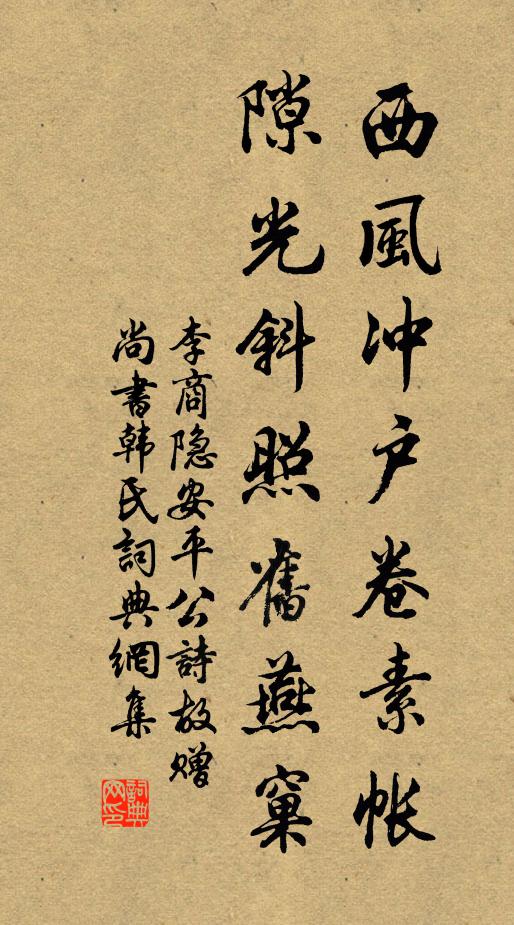 西風冲户卷素帐
隙光斜照舊燕窠
李商隐安平公詩故赠
尚書韩氏詞典網集
詞典网印